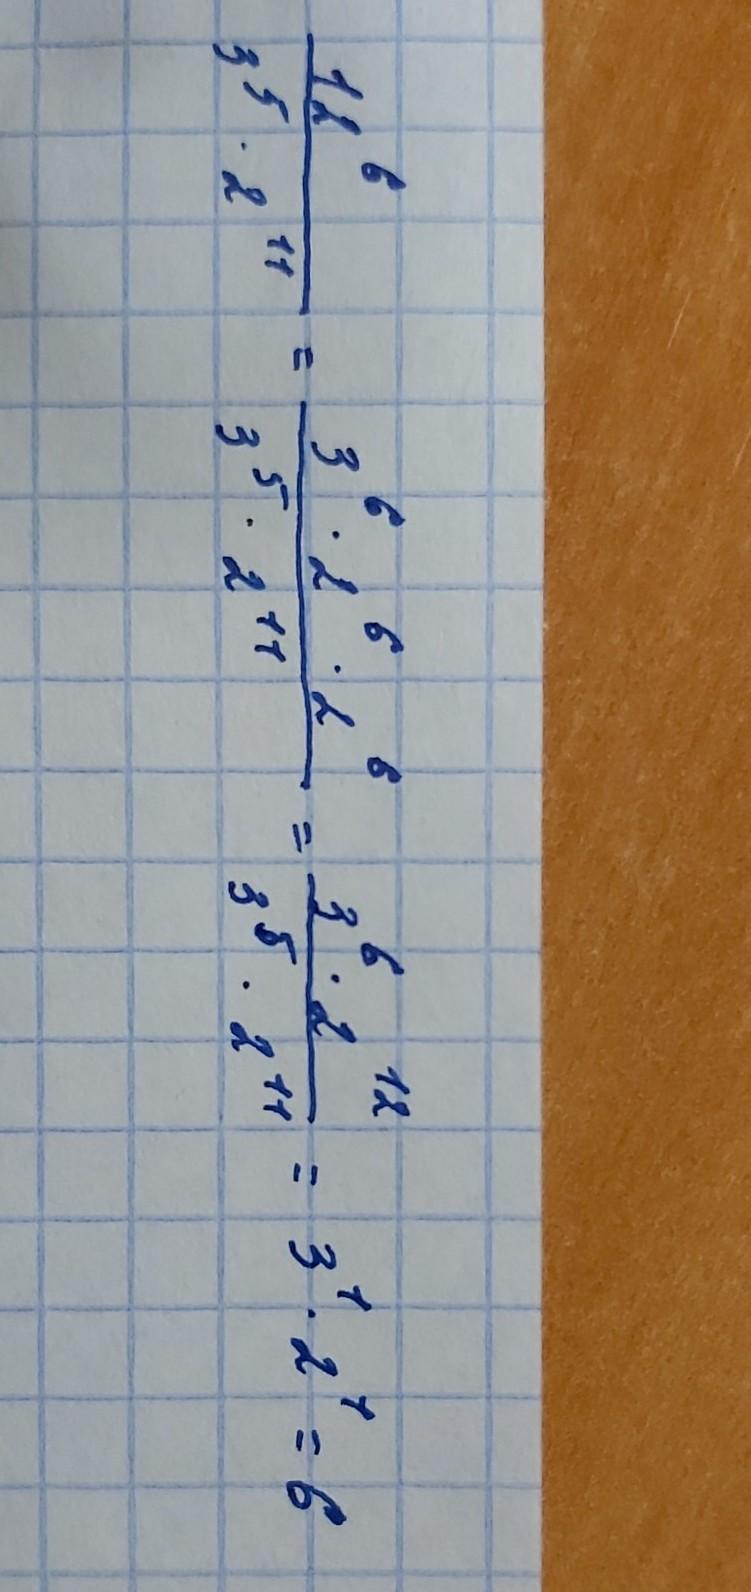 12^6 / (3^5 · 2^11) = (3^6 · 2^6 · 2^6) / (3^5 · 2^11) = (3^6 · 2^12) / (3^5 · 2^11) = 3^1 · 2^1 = 6